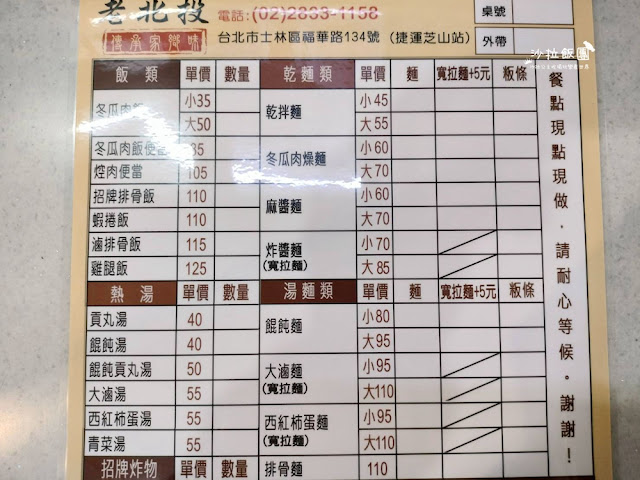 老北投 電話:(02)2833-1158 桌號
傳承家鄉味 台北市士林區福華路134號 (捷運芝山站) 外帶
沙拉飯團
飯類 單價 數量 乾麵類 單價 麵 寬拉麵+5元 粄條
冬瓜肉 小35 乾拌麵 小45
大50 大55
冬瓜肉飯便當 85 冬瓜肉燥麵 小60
焢肉便當 105 大70
招牌排骨飯 110 麻醬麵 小60
蝦捲飯 110 大70
滷排骨飯 115 炸醬麵 (寬拉麵) 小70
雞腿飯 125 大85
熱湯 單價 數量 湯麵類 單價 麵 寬拉麵+5元 粄條
貢丸湯 40 餛飩麵 小80
餛飩湯 40 大95
餛飩貢丸湯 50 大滷麵 (寬拉麵) 小95
大滷湯 55 大110
西紅柿蛋湯 55 西紅柿蛋麵 (寬拉麵) 小95
青菜湯 55 大110
招牌炸物 單價 數量 排骨麵 110
餐點現點現做。請耐心等候。謝謝!